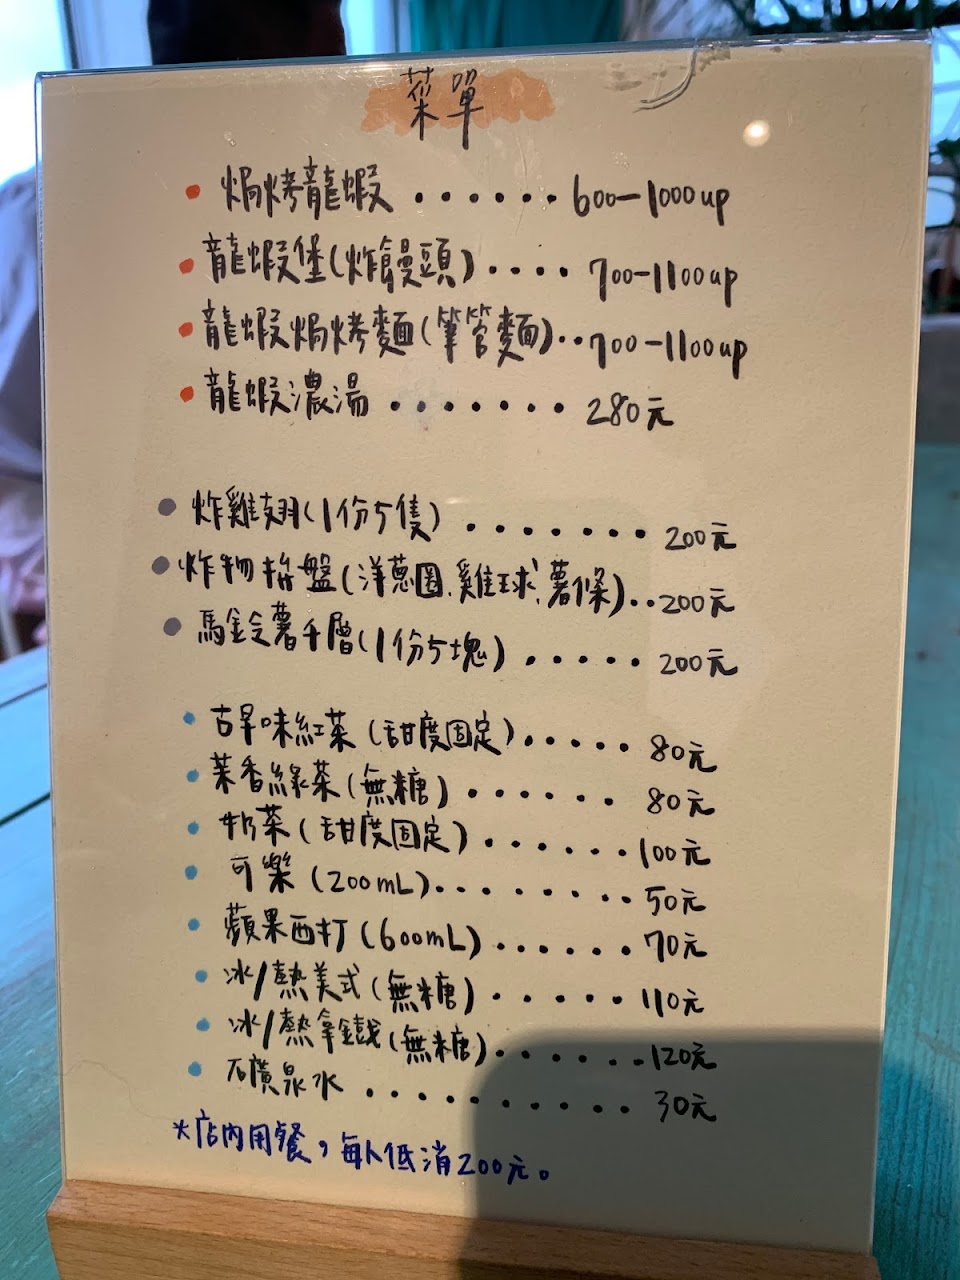 菜單
焗烤龍蝦......600-1000up
龍蝦堡(炸饅頭)....700-1100up
龍蝦焗烤麵(筆管麵)..700-1100up
龍蝦濃湯.......280元
炸雞翅(1份5隻).......200元
炸物拚盤(洋蔥圈、雞球、薯條)..200元
馬鈴薯千層(1份5塊).....200元
古早味紅茶(甜度固定).....80元
茉香綠茶(無糖)......80元
奶茶(甜度固定)......100元
可樂(200mL)........50元
蘋果西打(600mL)......70元
冰/熱美式(無糖).....110元
冰/熱拿鐵(無糖).......120元
石廣泉水..........30元
*店內用餐,每人低消200元。